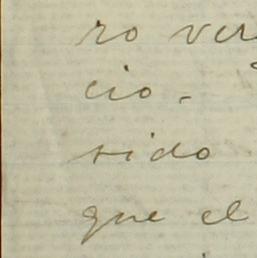 ro ver
cio.-
sido
que el